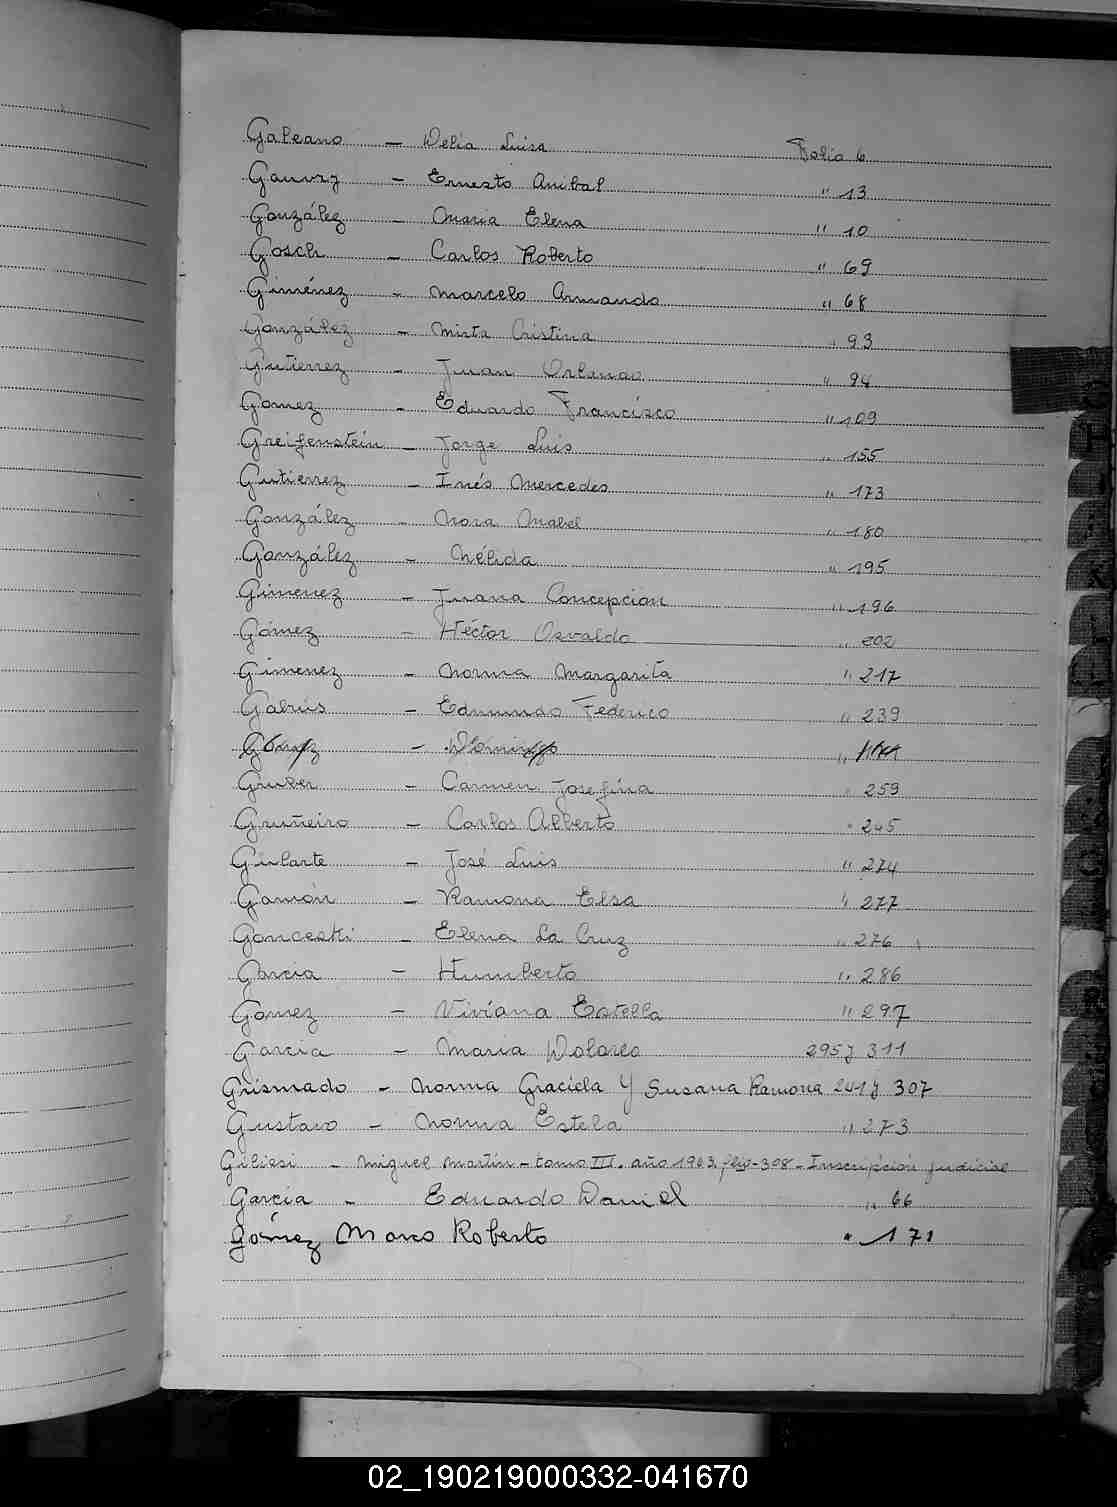 Galeano - Delia Luisa Folio 6
Gauvry - Ernesto Anibal " 13
González - Maria Elena " 10
Gosch - Carlos Roberto " 69
Giménez - Marcelo Armando " 68
González - Mirta Cristina " 93
Gutierrez - Juan Orlando " 94
Gomez - Eduardo Francisco " 109
Greifenstein - Jorge Luis " 155
Gutierrez - Inés Mercedes " 173
González - Nora Mabel " 180
González - Nélida " 195
Gimenez - Juana Concepcion " 196
Gómez - Héctor Osvaldo " 202
Gimenez - Norma Margarita " 217
Galrús - Edmundo Federico " 239
Gómez - Domingo "
Gruber - Carmen Josefina " 259
Gruñeiro - Carlos Alberto " 245
Gularte - José Luis " 274
Gamón - Ramona Elsa " 277
Elena La Cruz " 276
Garcia - Humberto " 286
Gomez - Viviana Estella " 297
Garcia - Maria Dolores 295 y 311
Grismado - Norma Graciela y Susana Ramona 241 y 307
Gustavo - Norma Estela " 273
Giliesi - Miguel Martín - tomo III. año 1963. flio - 308 - Inscripción judicial
García - Eduardo Daniel " 66
Gómez Marco Roberto " 171
02_190219000332-041670